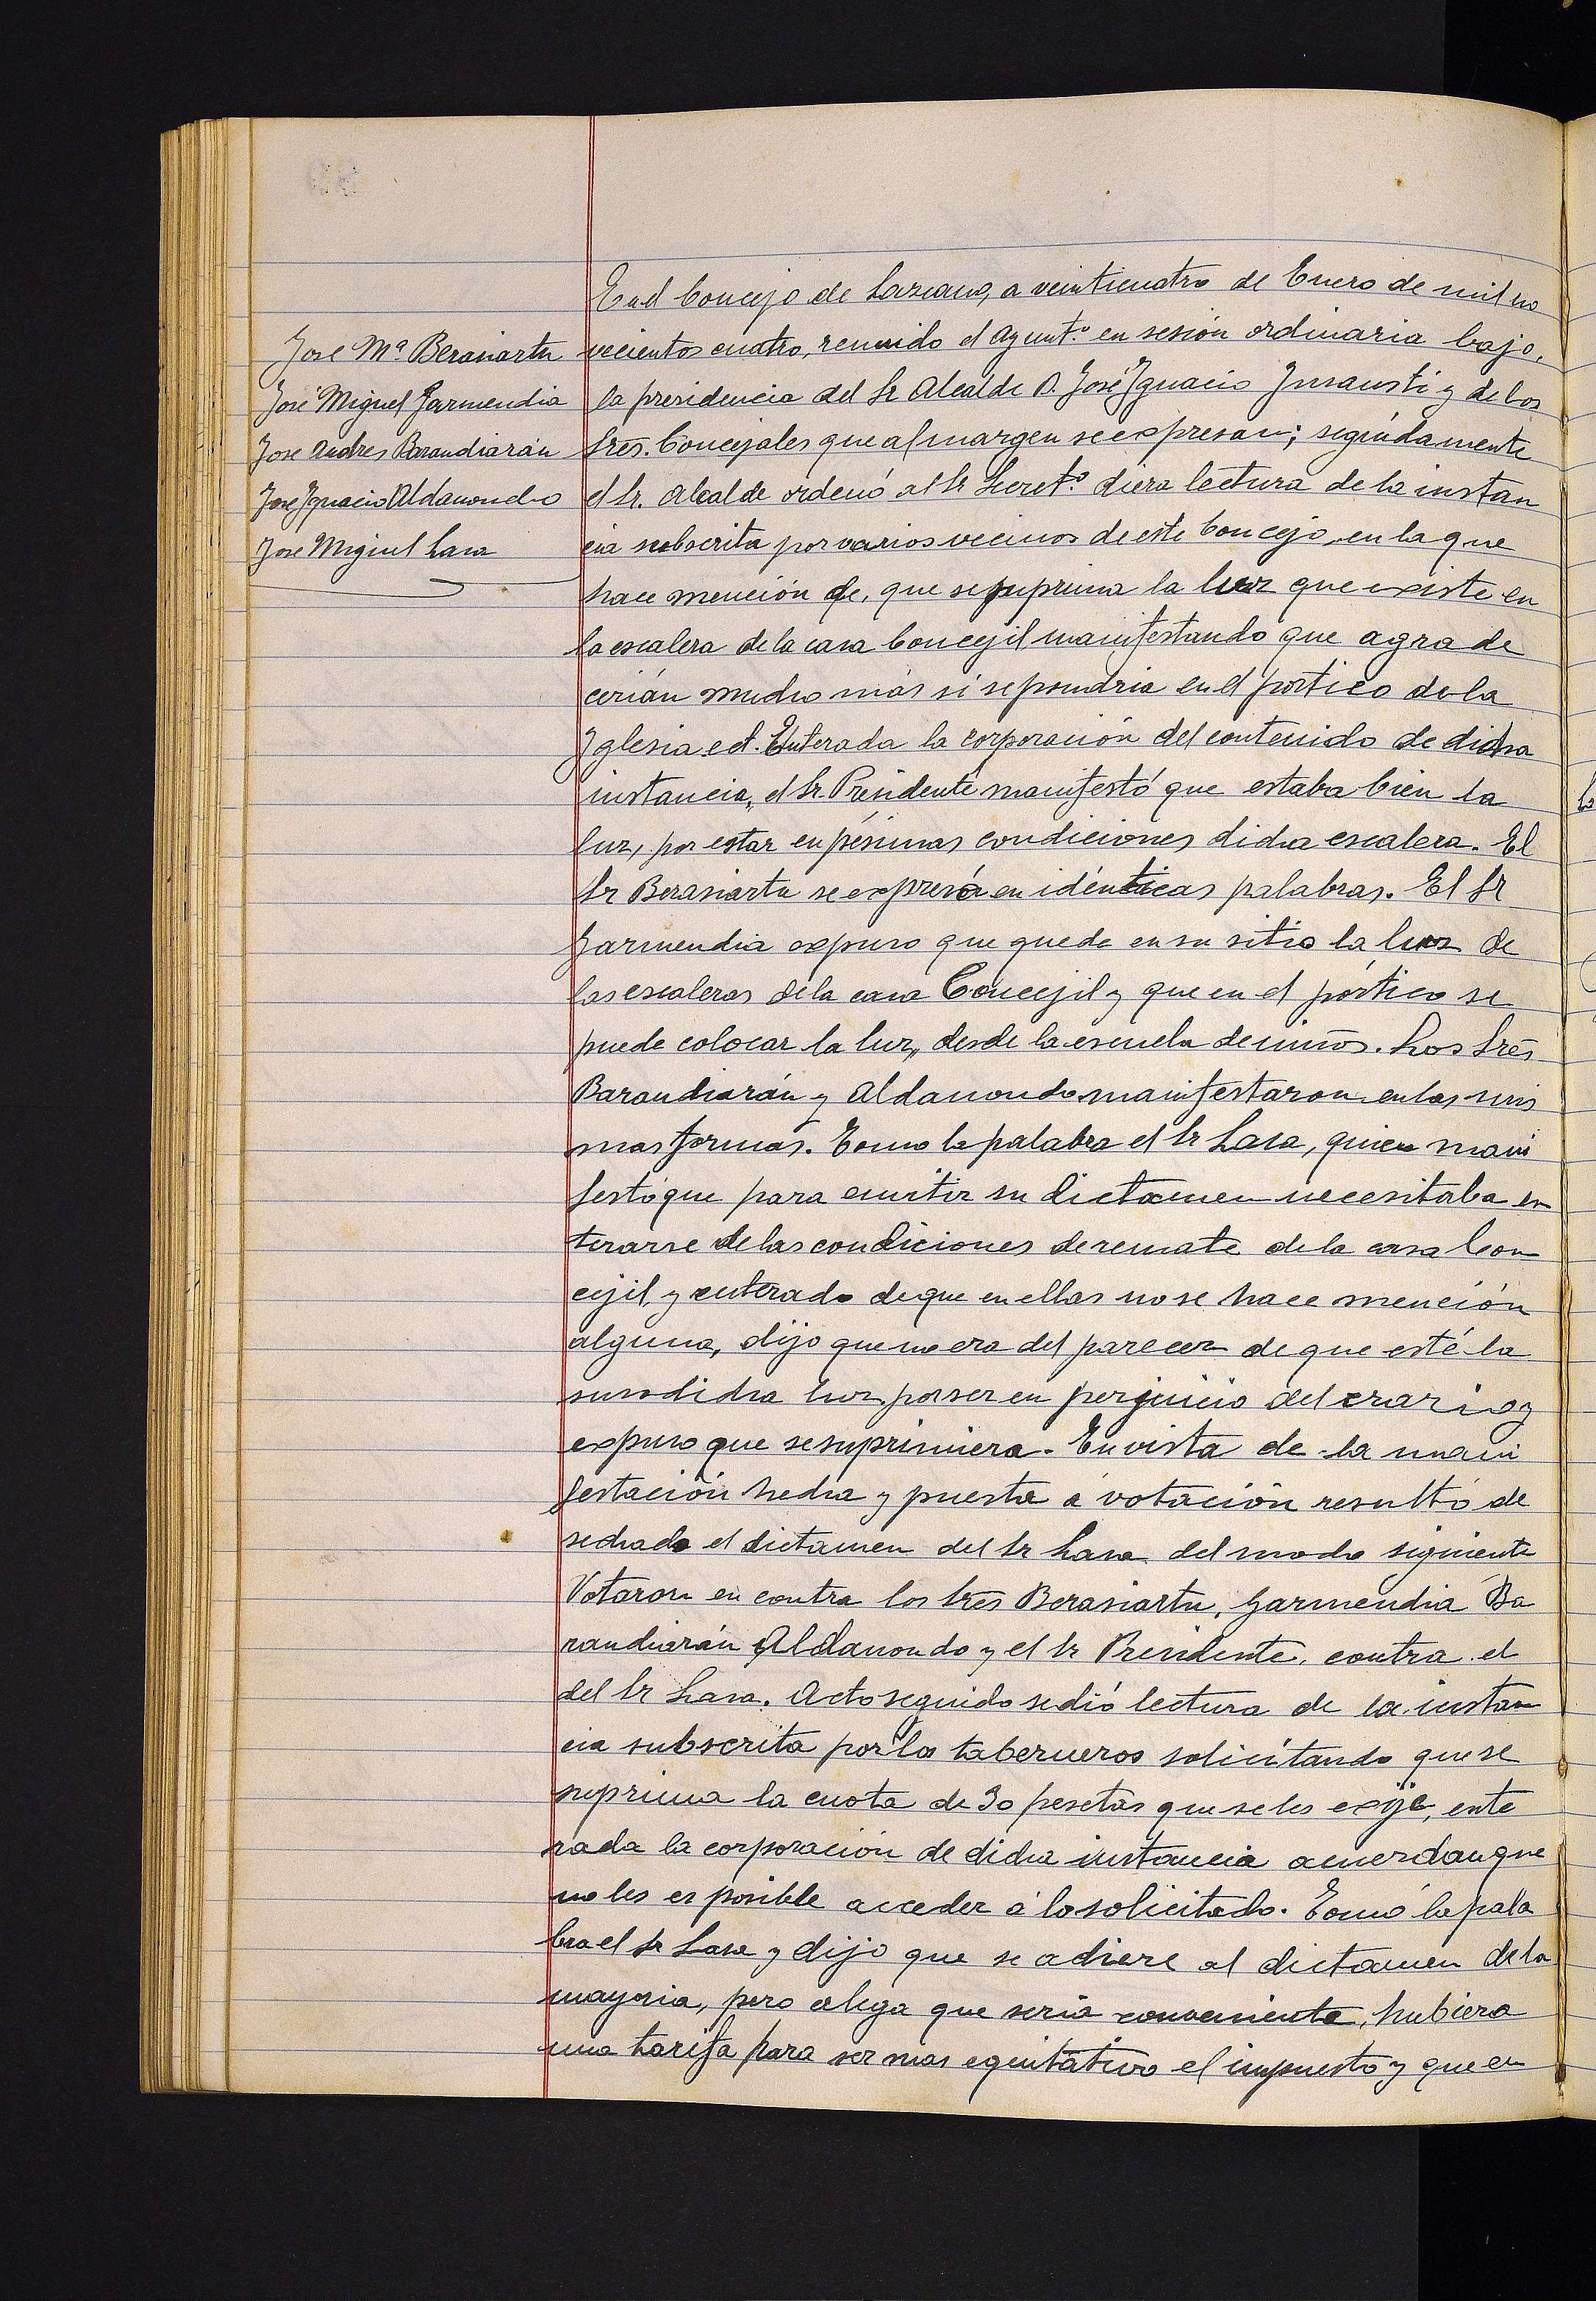 José Mª Berasiartu
José Miguel Garmendia
José Andres Barandiarán
José Ignacio Aldanondo
José Miguel Lasa
En el Concejo de Lazcano, a veinticuatro de Enero de mil no
vecientos cuatro, reunido el Ayuntº en sesión ordinaria bajo,
la presidencia del Sr Alcalde D. José Ignacio Insausti y de los
Sres. Concejales que al margen se expresan; segúidamente
el Sr. Alcalde ordenó al Sr Secretº diera lectura de la instan
cia subscrita por varios vecinos de este Concejo, en la que
hace mención de, que se suprima la luz que existe en
la escalera de la casa Concejil manifestando que agrade
cerián mucho más si se pondria en el portico de la
Iglesia ect. Enterada la corporación del contenido de dicha
instancia, el Sr. Presidente manifestó que estaba bien la
luz, por estar en pésimas condiciones dicha escalera. El
Sr Berasiartu se expresó en idénticas palabras. El Sr
Garmendia expuso que quede en su sitio la luz de
las escaleras de la casa Concejil y que en el pórtico se
puede colocar la luz, desde la escuela de niños. Los Sres
Barandiarán y Aldanondo manifestaron en las mis
mas formas. Tomo la palabra el Sr Lasa, quien mani
festó que para emitir su dictamen necesitaba en
terarse de las condiciones de remate de la casa Con
cejil, y enterado de que en ellas no se hace mención
alguna, dijo que no era del parecer de que esté la
susodicha luz por ser en perjuicio del erario y
expuso que se suprimiera. En vista de la mani
festación hecha y puesta á votación resultó de
sechado el dictamen del Sr Lasa del modo siguiente
Votaron en contra los Sres Berasiartu, Garmendia Ba
randiarán Aldanondo y el Sr Presidente, contra el
del Sr Lasa. Acto seguido se dió lectura de la instan
cia subscrita por los taberneros solicitando que se
suprima la cuota de 30 pesetas que se les exije, ente
rada la corporación de dicha instancia acuerdan que
no les es posible acceder á lo solicitado. Tomó la pala
bra el Sr Lasa y dijo que se adiere al dictamen de la
mayoria, pero alega que seria conveniente, hubiera
una tarifa para ser mas equitativo el impuesto y que en